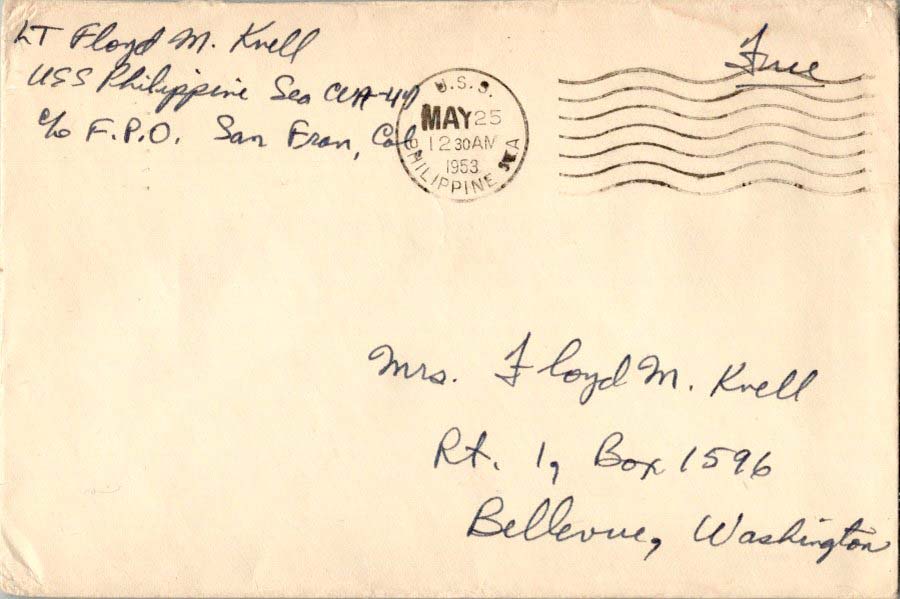 LT Floyd M. Knell
USS Philippine Sea CVA-47
c/o F.P.O. San Fran, Cal
Free
U.S.S.
MAY 25
12 30 AM
1953
PHILIPPINE SEA
Mrs. Floyd M. Knell
Rt. 1, Box 1596
Bellevue, Washington